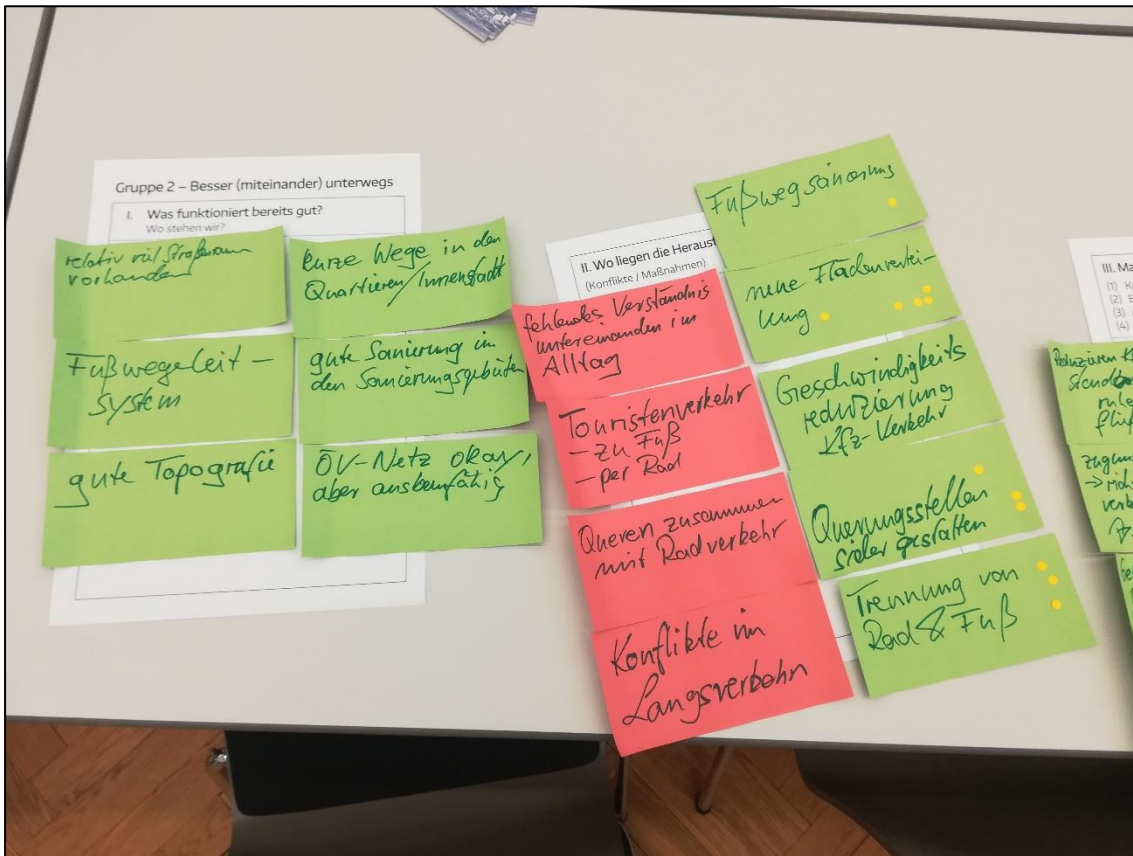 Gruppe 2 – Besser (miteinander) unterwegs
I. Was funktioniert bereits gut?
Wo stehen wir?
relativ viel Straßenraum
vorhanden
kurze Wege in den
Quartieren/Innenstadt
Fußwegeleit-
system
gute Sanierung in
den Sanierungsgebieten
gute Topografie
ÖV-Netz okay,
aber ausbaufähig
II. Wo liegen die
(Konflikte / Maßnahmen)
fehlendes Verständnis
untereinander im
Alltag
Touristenverkehr
- zu Fuß
- per Rad
Queren zusammen
mit Radverkehr
Konflikte im
Längsverkehr
Fußwegsanierung
neue Flächenvertei-
lung
Geschwindigkeits
reduzierung
Kfz-Verkehr
Querungsstellen
sicher gestalten
Trennung von
Rad & Fuß
III.
(1)
(2)
(3)
(4)